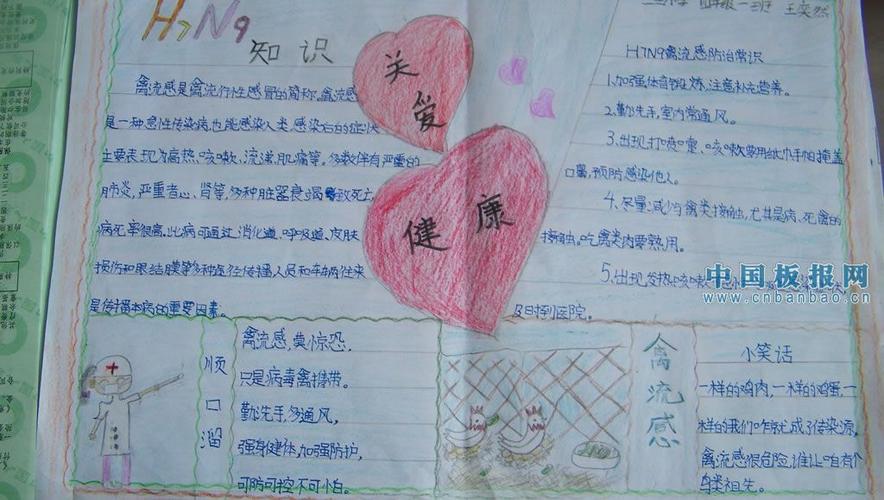 H7N9
知识
禽流感是禽流行性感冒的简称。禽流感
是一种急性传染病,也能感染人类,感染后的症状
主要表现为高热、咳嗽、流涕、肌痛等。多数伴有严重的
肺炎,严重者心、肾等多种脏器衰竭致死亡
病死率很高。此病可通过消化道、呼吸道、皮肤
损伤和眼结膜等多种途径传播人员和车辆往来
是传播本病的重要因素。
关
爱
健康
四年级一班
H7N9禽流感防治常识
1.加强体育锻炼,注意补充营养。
2.勤洗手,室内常通风。
3.出现打喷嚏、咳嗽要用纸巾手帕掩盖
口鼻,预防感染他人。
4.尽量减少与禽类接触,尤其是病、死禽的
接触。吃禽类肉要熟用。
5.出现发热、咳嗽
及时到医院。
中国板报网
www.cnbanbao.cn
顺口溜
禽流感,莫惊恐,
只是病毒禽携带。
勤洗手,多通风,
强身健体,加强防护,
可防可控不可小白。
禽流感
小笑话
一样的鸡肉,一样的鸡蛋,一
样的我们咋就成了传染源,
禽流感很危险,谁让咱有个
鸟类祖先。